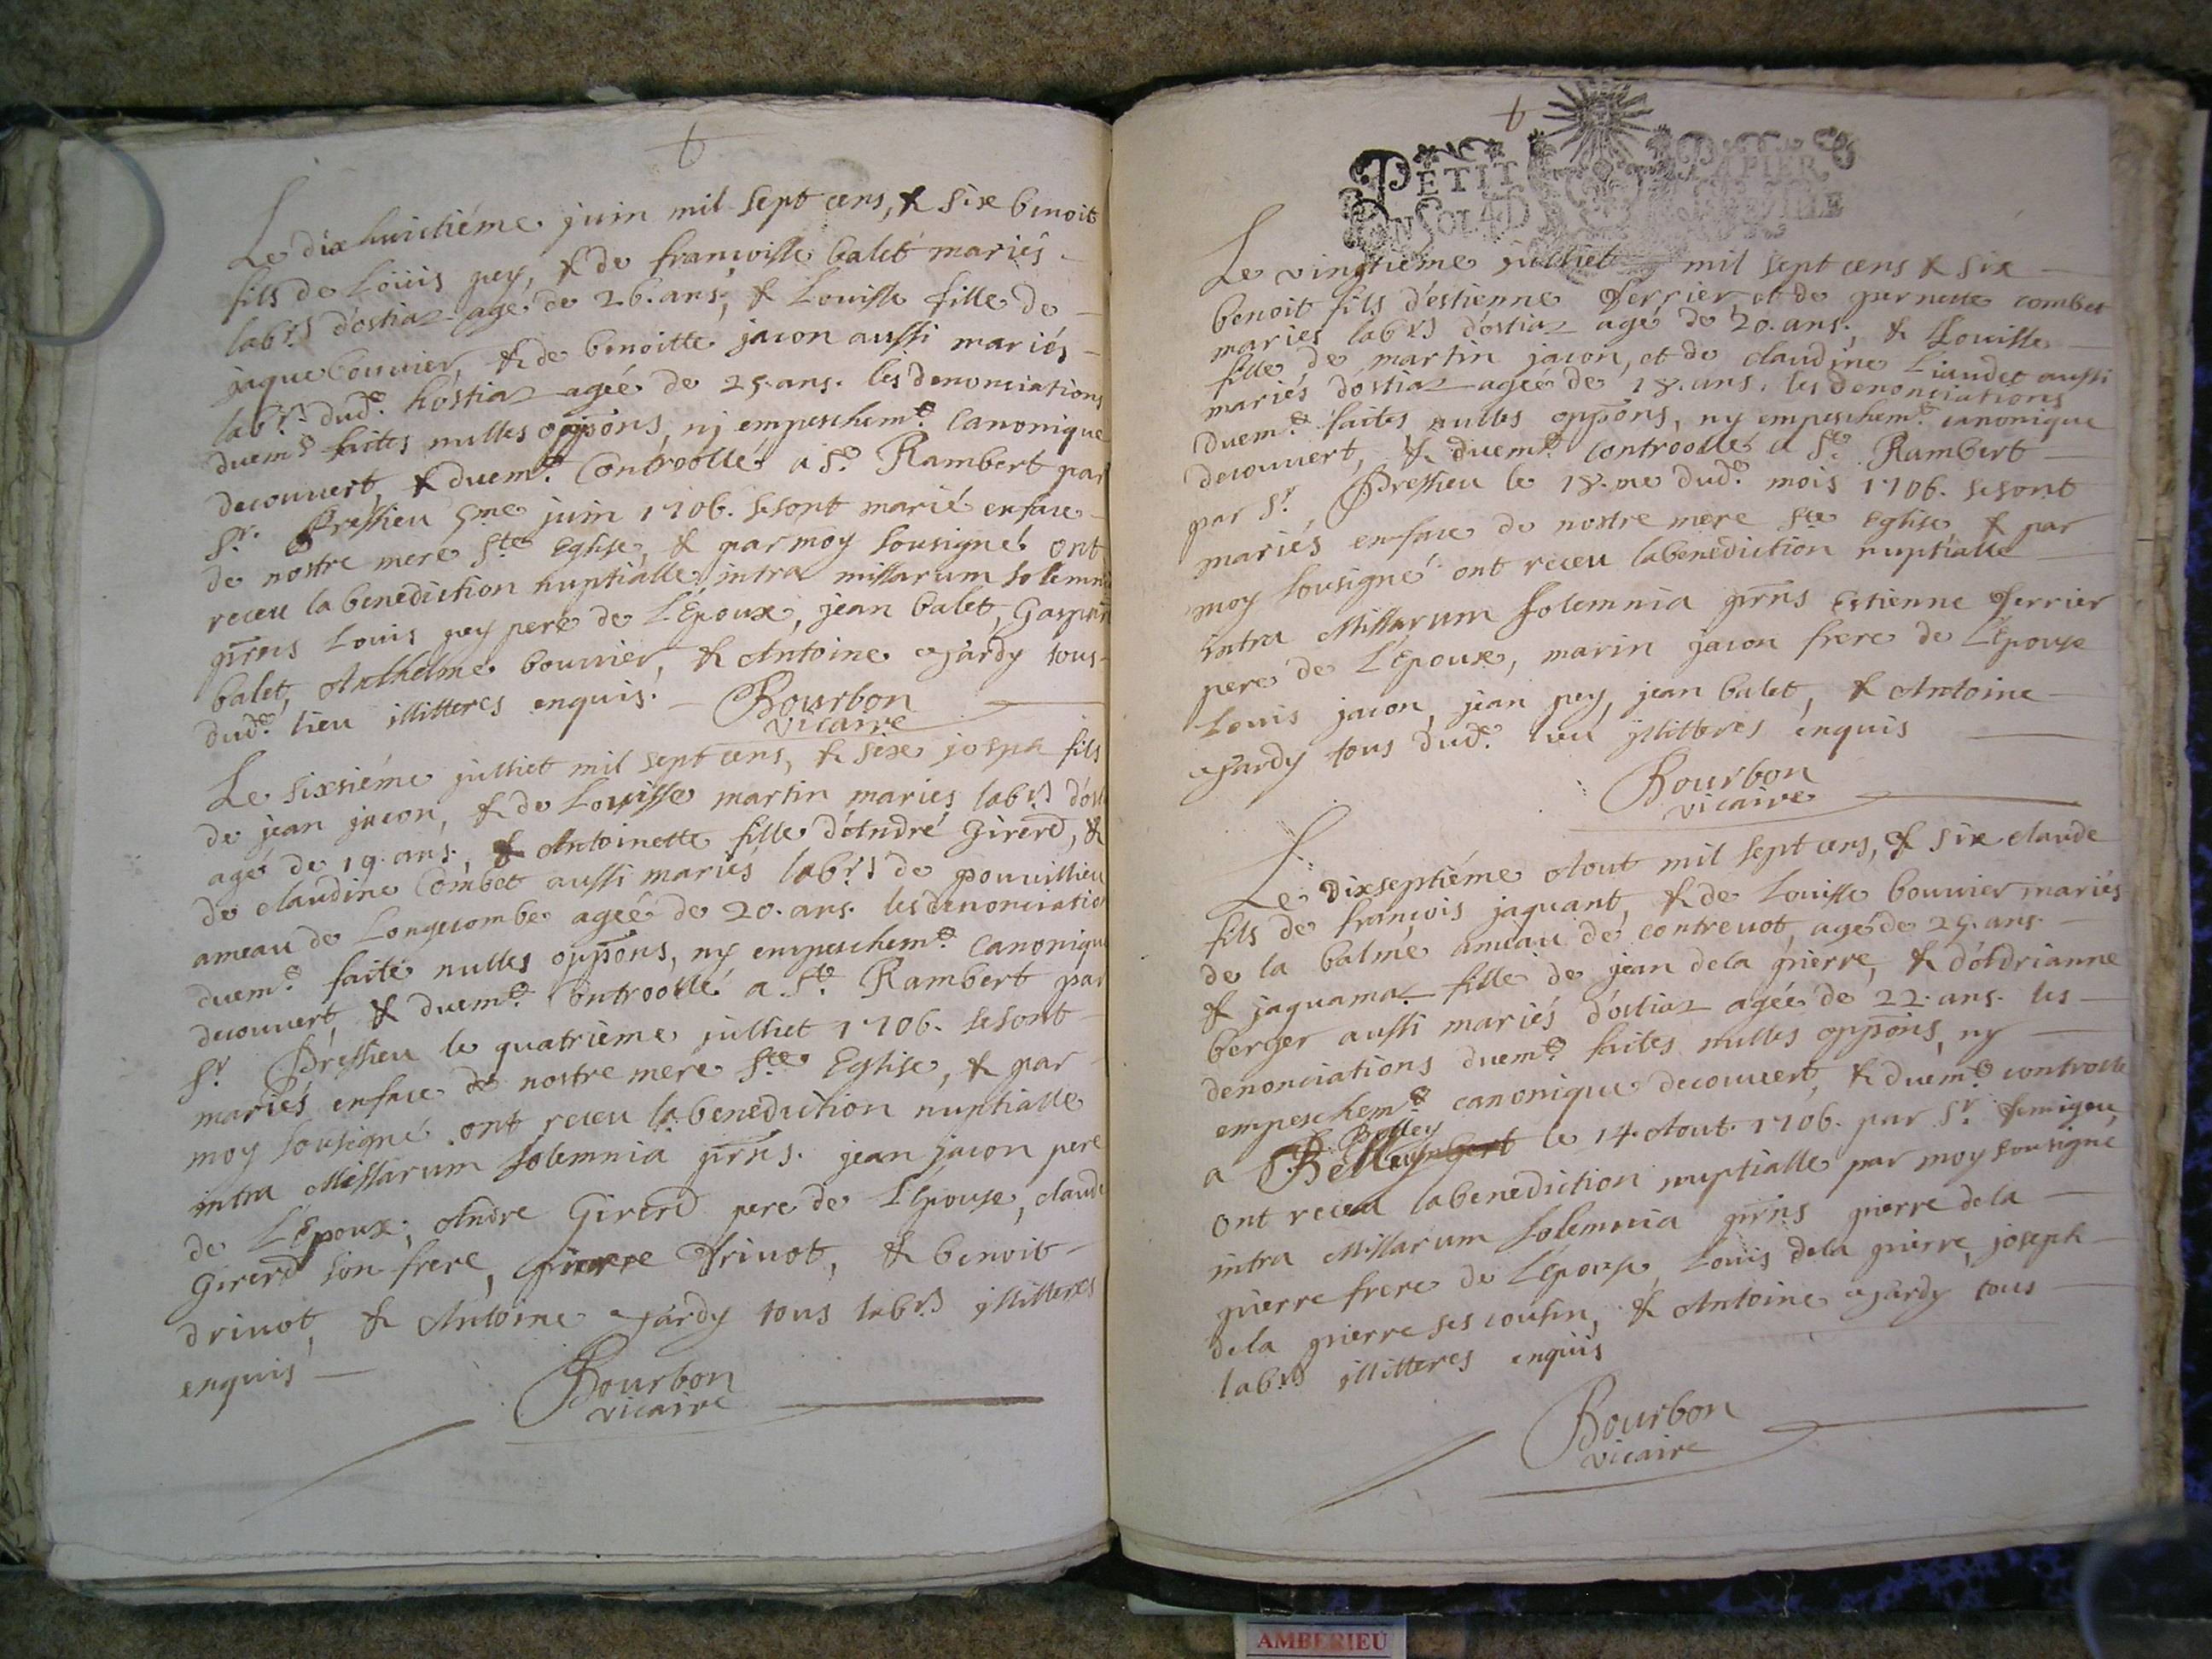 Le dix huictiéme juin mil sept cens, & six benoit
fils de Loüis pey, & de françoisse balet mariés
labrs d'ostiaz agé de 26. ans, & Louisse fille de
jaque bouvier, & de benoitte jacon aussi mariés
labrs dudt hostiaz agée de 25. ans. les denonciations
duemt faites nulles oppons, nj empeschemt Canonique
decouvert, & duemt Controollé a St Rambert par
Sr Pressieu 5me juin 1706. se sont marié en face
de nostre mere Ste Eglise, & par moy sousigné ont
receu la benediction nuptialle intra missarum solemni
pnts Louis pey pere de L'Epoux, jean balet, Gaspar
balet, Anthelme bouvier, & Antoine jardy tous
dudt lieu illitteres enquis.
Bourbon
vicaire
Le sixsiéme julliet mil sept cens, & six joseph fils
de jean jacon, & de Louisse martin maries labrs d'ost
agé de 19. ans, & Antoinette fille d'André Girerd, &
de claudine Combet aussi mariés labrs de
ameau de Longecombe agée de 20. ans. les denonciatio
duemt faite nulles oppons, ny empeschemt Canonique
decouvert, & duemt Controollé a St Rambert par
Sr Pressieu le quatrieme julliet 1706. se sont
mariés en face de nostre mere Ste Eglise, & par
moy sousigné ont receu la benediction nuptialle
intra Missarum solemnia pnts. jean jacon pere
de L'Epoux, Andre Girerd pere de L'Epouse, claude
Girerd son frere, pierre drivot, & benoit
drivot, & Antoine jardy tous labrs jllitteres
enquis
Bourbon
vicaire
PETIT PAPIER
UN SOL 4 D
Le vingtiéme julliet mil sept cens & six
benoit fils d'estienne ferrier et de pernette combet
mariés labrs d'ostiaz agé de 20. ans, & Louisse
fille de martin jacon, et de claudine Liaudet aussi
mariés d'ostiaz agée de 18. ans. les denonciations
duemt faites nulles oppons, ny empeschemt canonique
decouvert, & duemt controollé a St Rambert
par Sr Pressieu le 18.me dudt mois 1706. se sont
mariés en face de nostre mere Ste Eglise & par
moy sousigné ont receu la benediction nuptialle
intra Missarum solemnia pnts Estienne ferrier
pere de L'Epoux, marin jacon frere de L'Epouse
Louis jacon, jean pey, jean balet, & Antoine
jardy tous dudt lieu jllitteres enquis
Bourbon
vicaire
Le dixseptiéme Aout mil sept cens, & six claude
fils de françois jaquant, & de Louisse bouvier mariés
de la balme ameau de contrevot, agé de 25. ans
& jaquama fille de jean dela pierre, & d'Adrianne
berger aussi mariés d'ostiaz agée de 22. ans. les
denonciations duemt faites nulles oppons, ny
empeschemt canonique decouvert, & duemt controllé
Belley
a le 14. Aout 1706. par Sr
ont receu la benediction nuptialle par moy sousigne
intra Missarum solemnia pnts pierre dela
pierre frere de L'epouse, Louis dela pierre, joseph
dela pierre ses cousin, & Antoine jardy tous
labrs jllitteres enquis
Bourbon
vicaire
AMBERIEU